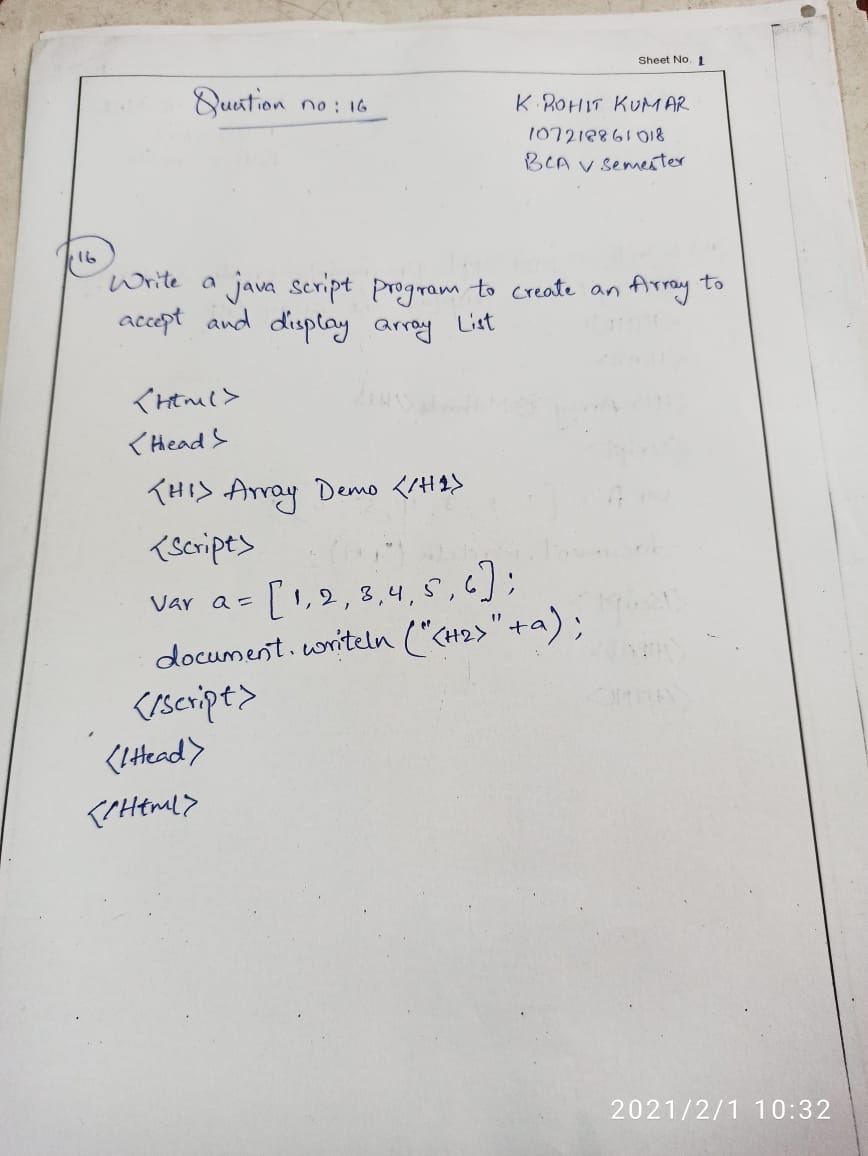 Sheet No. 1
Question no : 16
K. ROHIT KUMAR
107218861018
BCA V Semester
16
Write a java script program to create an Array to
accept and display array List
<Html>
<Head>
<H1> Array Demo </H1>
<Script>
Var a = [1, 2, 3, 4, 5, 6];
document.writeln ("<H2>"+a);
</Script>
</Head>
</Html>
2021/2/1 10:32